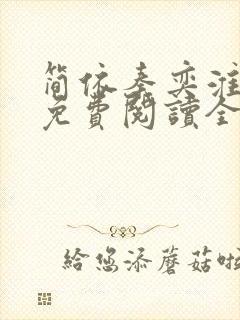 简依秦奕淮
免費閱讀全
给您添蘑菇啦